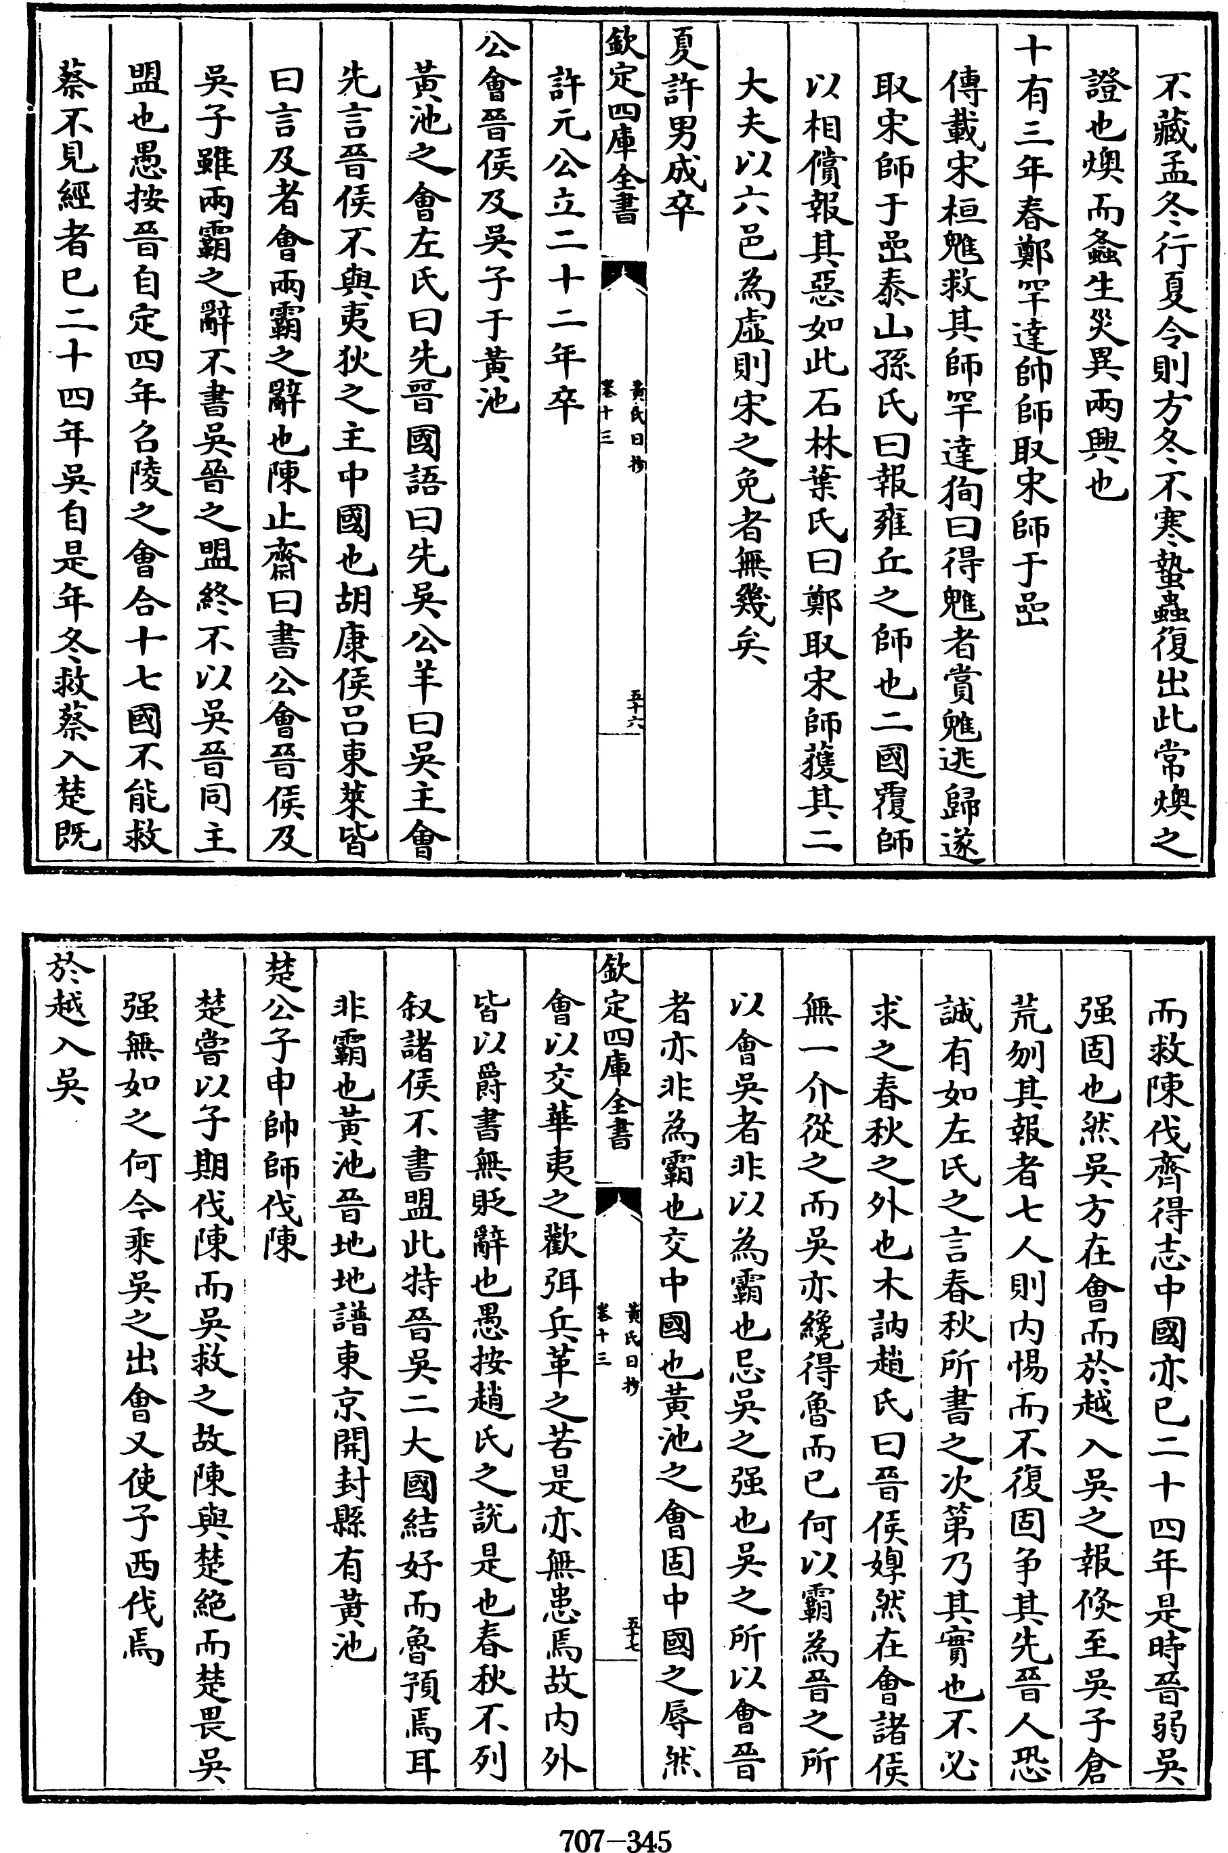 不藏孟冬行夏令則方冬不寒蟄蟲復出此常燠之
證也燠而螽生災異兩興也
十有三年春鄭罕達帥師取宋師于嵒
傳載宋桓魋救其師罕達徇曰得魋者賞魋逃歸遂
取宋師于嵒泰山孫氏曰報雍丘之師也二國覆師
以相償報其惡如此石林葉氏曰鄭取宋師獲其二
大夫以六邑為虛則宋之免者無幾矣
夏許男成卒
欽定四庫全書
黃氏日抄
卷十三
五十六
許元公立二十二年卒
公會晉侯及吳子于黃池
黃池之會左氏曰先晉國語曰先吳公羊曰吳主會
先言晉侯不與夷狄之主中國也胡康侯呂東萊皆
曰言及者會兩霸之辭也陳止齋曰書公會晉侯及
吳子雖兩霸之辭不書吳晉之盟終不以吳晉同主
盟也愚按晉自定四年召陵之會合十七國不能救
蔡不見經者已二十四年吳自是年冬救蔡入楚既
而救陳伐齊得志中國亦已二十四年是時晉弱吳
强固也然吳方在會而於越入吳之報倐至吳子倉
荒刎其報者七人則内惕而不復固争其先晉人恐
誠有如左氏之言春秋所書之次第乃其實也不必
求之春秋之外也木訥趙氏曰晉侯嫭然在會諸侯
無一介從之而吳亦纔得魯而已何以霸為晉之所
以會吳者非以為霸也忌吳之强也吳之所以會晉
者亦非為霸也交中國也黃池之會固中國之辱然
欽定四庫全書
黃氏日抄
卷十三
五十七
會以交華夷之歡弭兵革之苦是亦無患焉故内外
皆以爵書無貶辭也愚按趙氏之説是也春秋不列
叙諸侯不書盟此特晉吳二大國結好而魯預焉耳
非霸也黃池晉地地譜東京開封縣有黃池
楚公子申帥師伐陳
楚嘗以子期伐陳而吳救之故陳與楚絕而楚畏吳
强無如之何今乘吳之出會又使子西伐焉
於越入吳
707-345